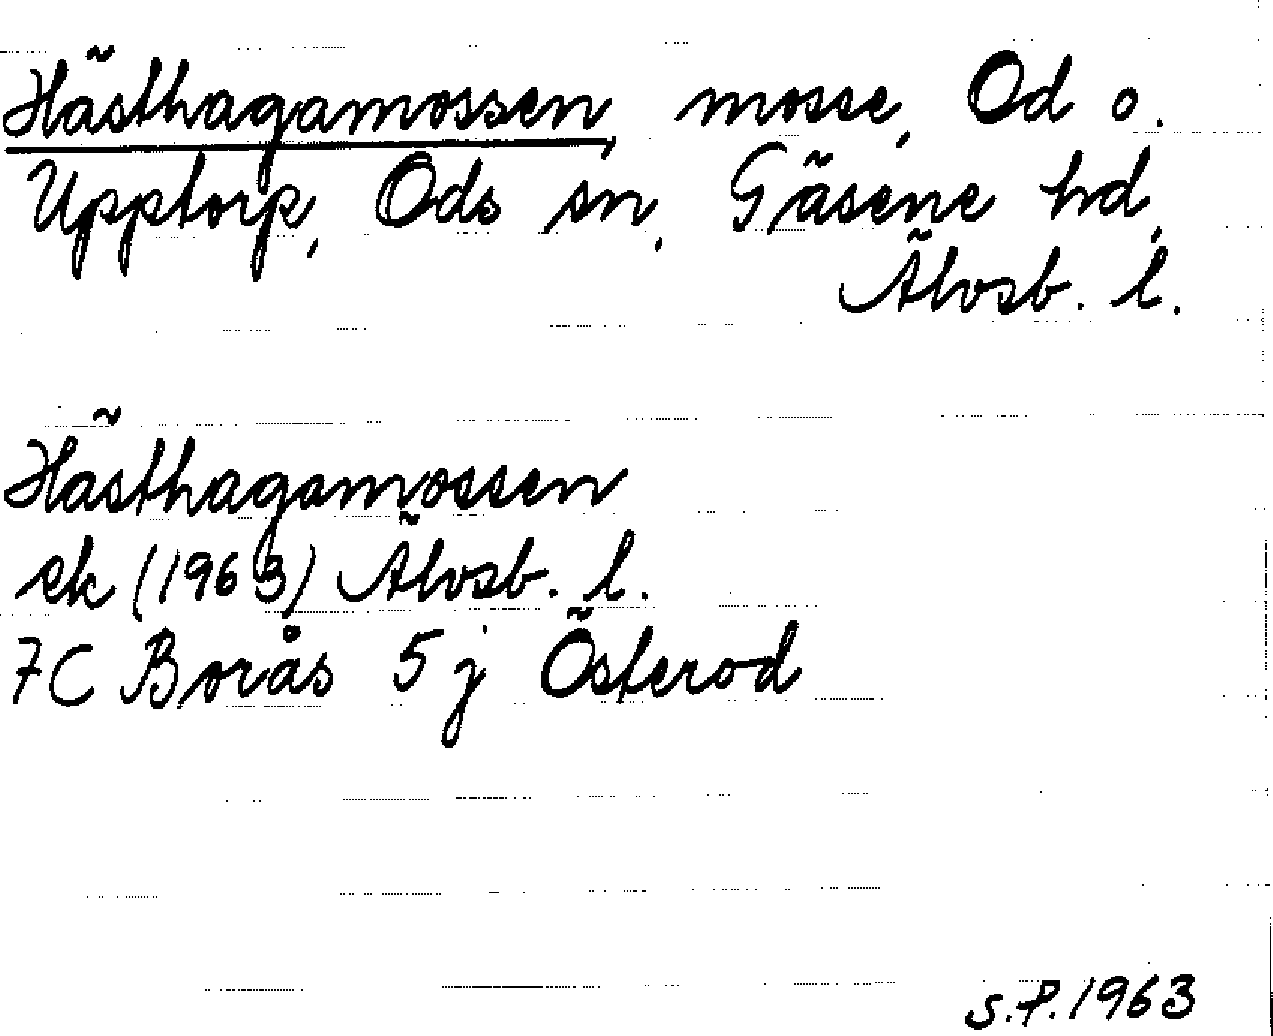 Hästhagamossen, mosse, Od o.
Upptorp, Ods sn, Gäsene hd,
Älvsb. l.
Hästhagamossen
ek (1963) Älvsb. l.
7C Borås 5 j Österod
S.P. 1963